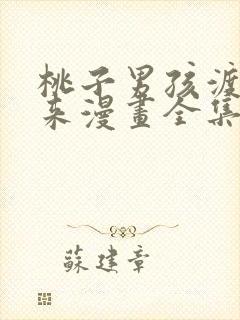 桃子男孩渡
来漫畫全集
蘇建章